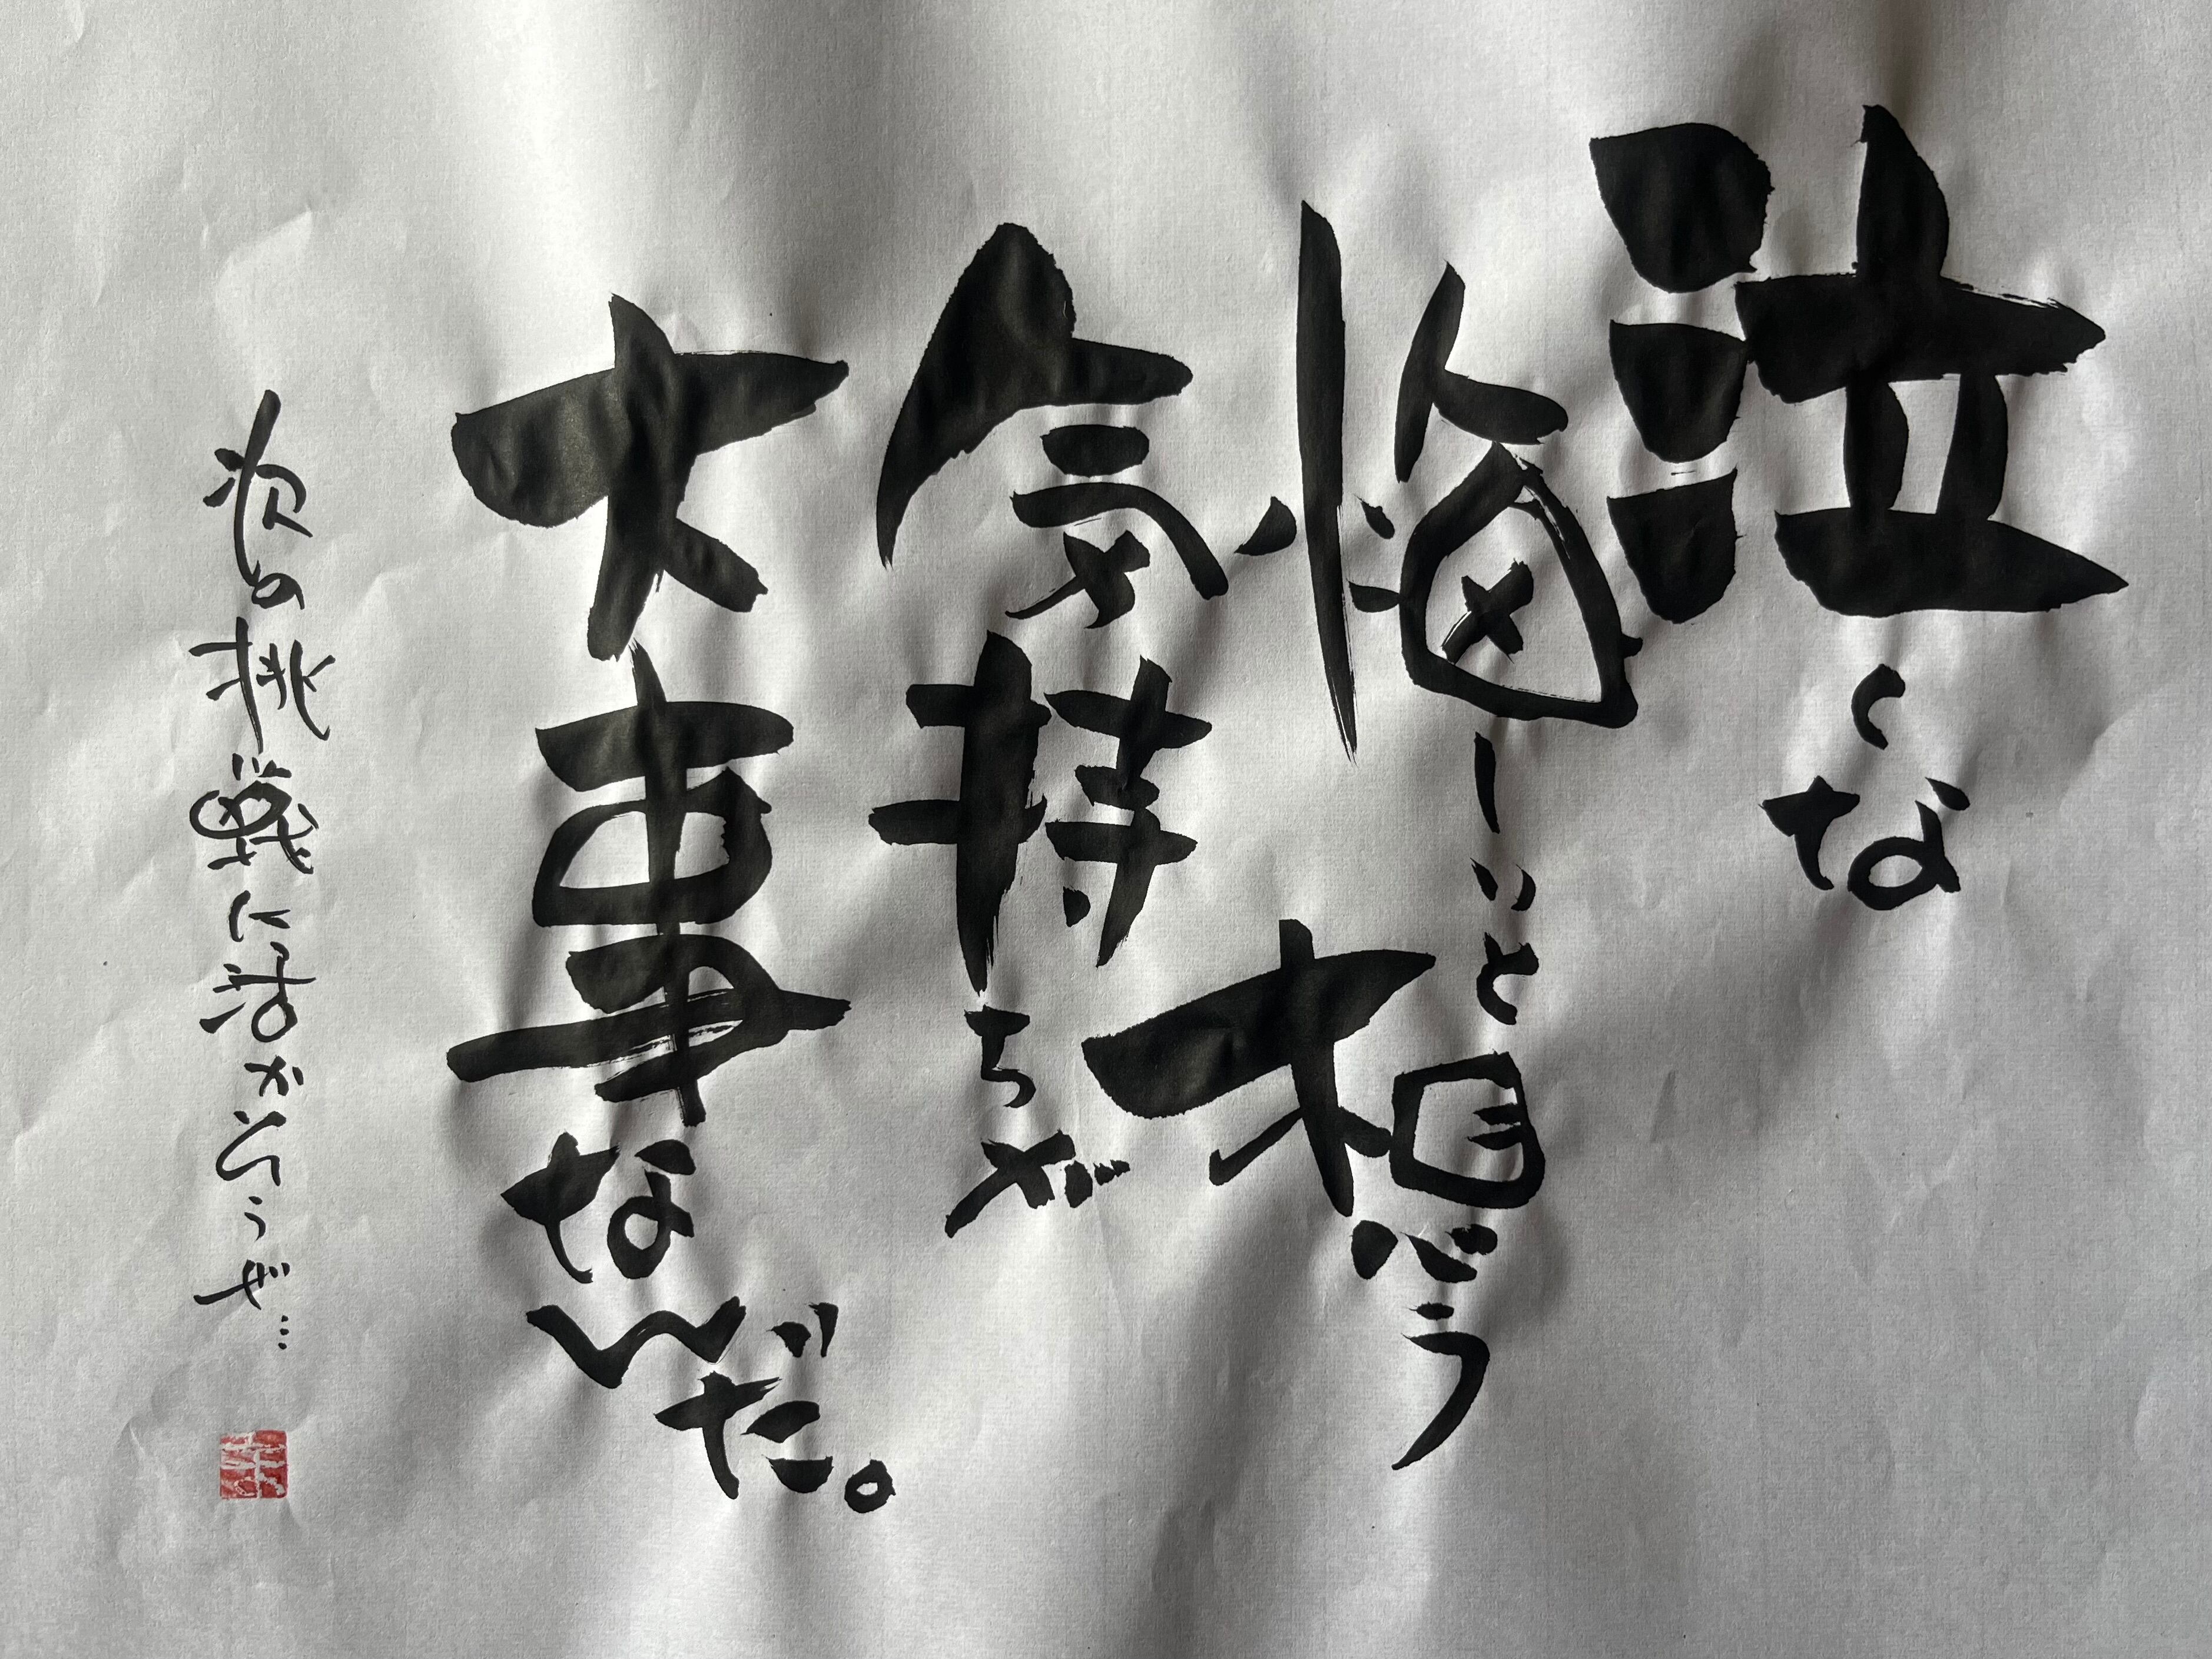 泣くな
悔しいと想う
気持ちが
大事なんだ。
次の挑戦に活かそうぜ…